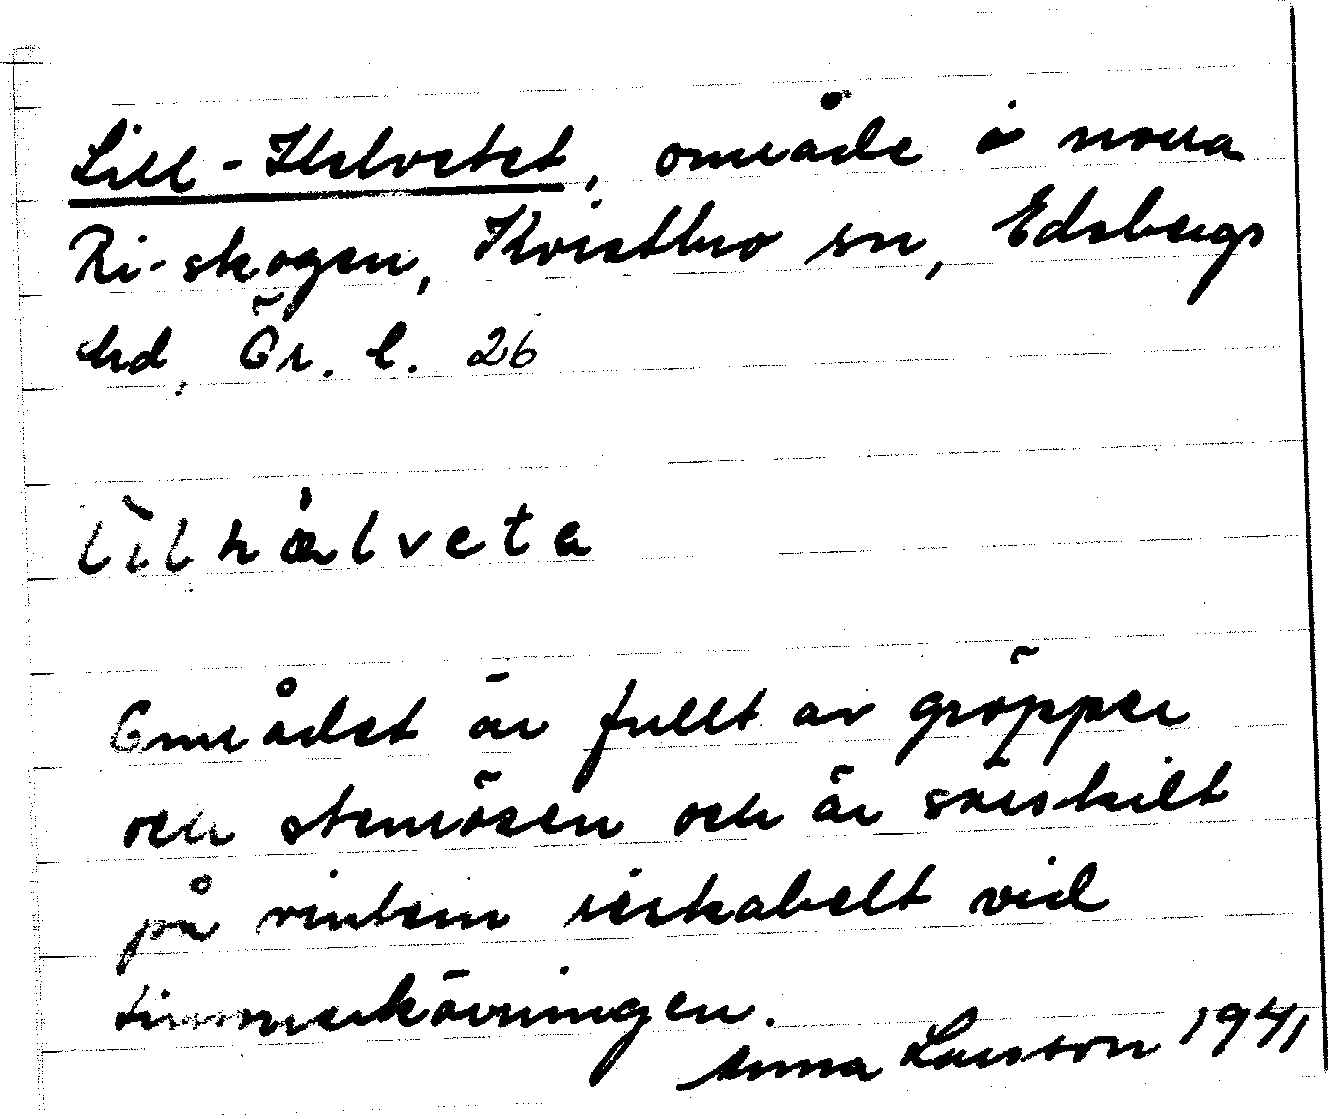 Lill-Helvetet, område i norra
Ri-skogen, Kvistbro sn, Edsbergs
hd, Ör. l. 26
lìlhǽlveta
Området är fullt av gröpper
och stenrösen och är särskilt
på vintern riskabelt vid
timmerkörningen.
Anna Larsson 1941